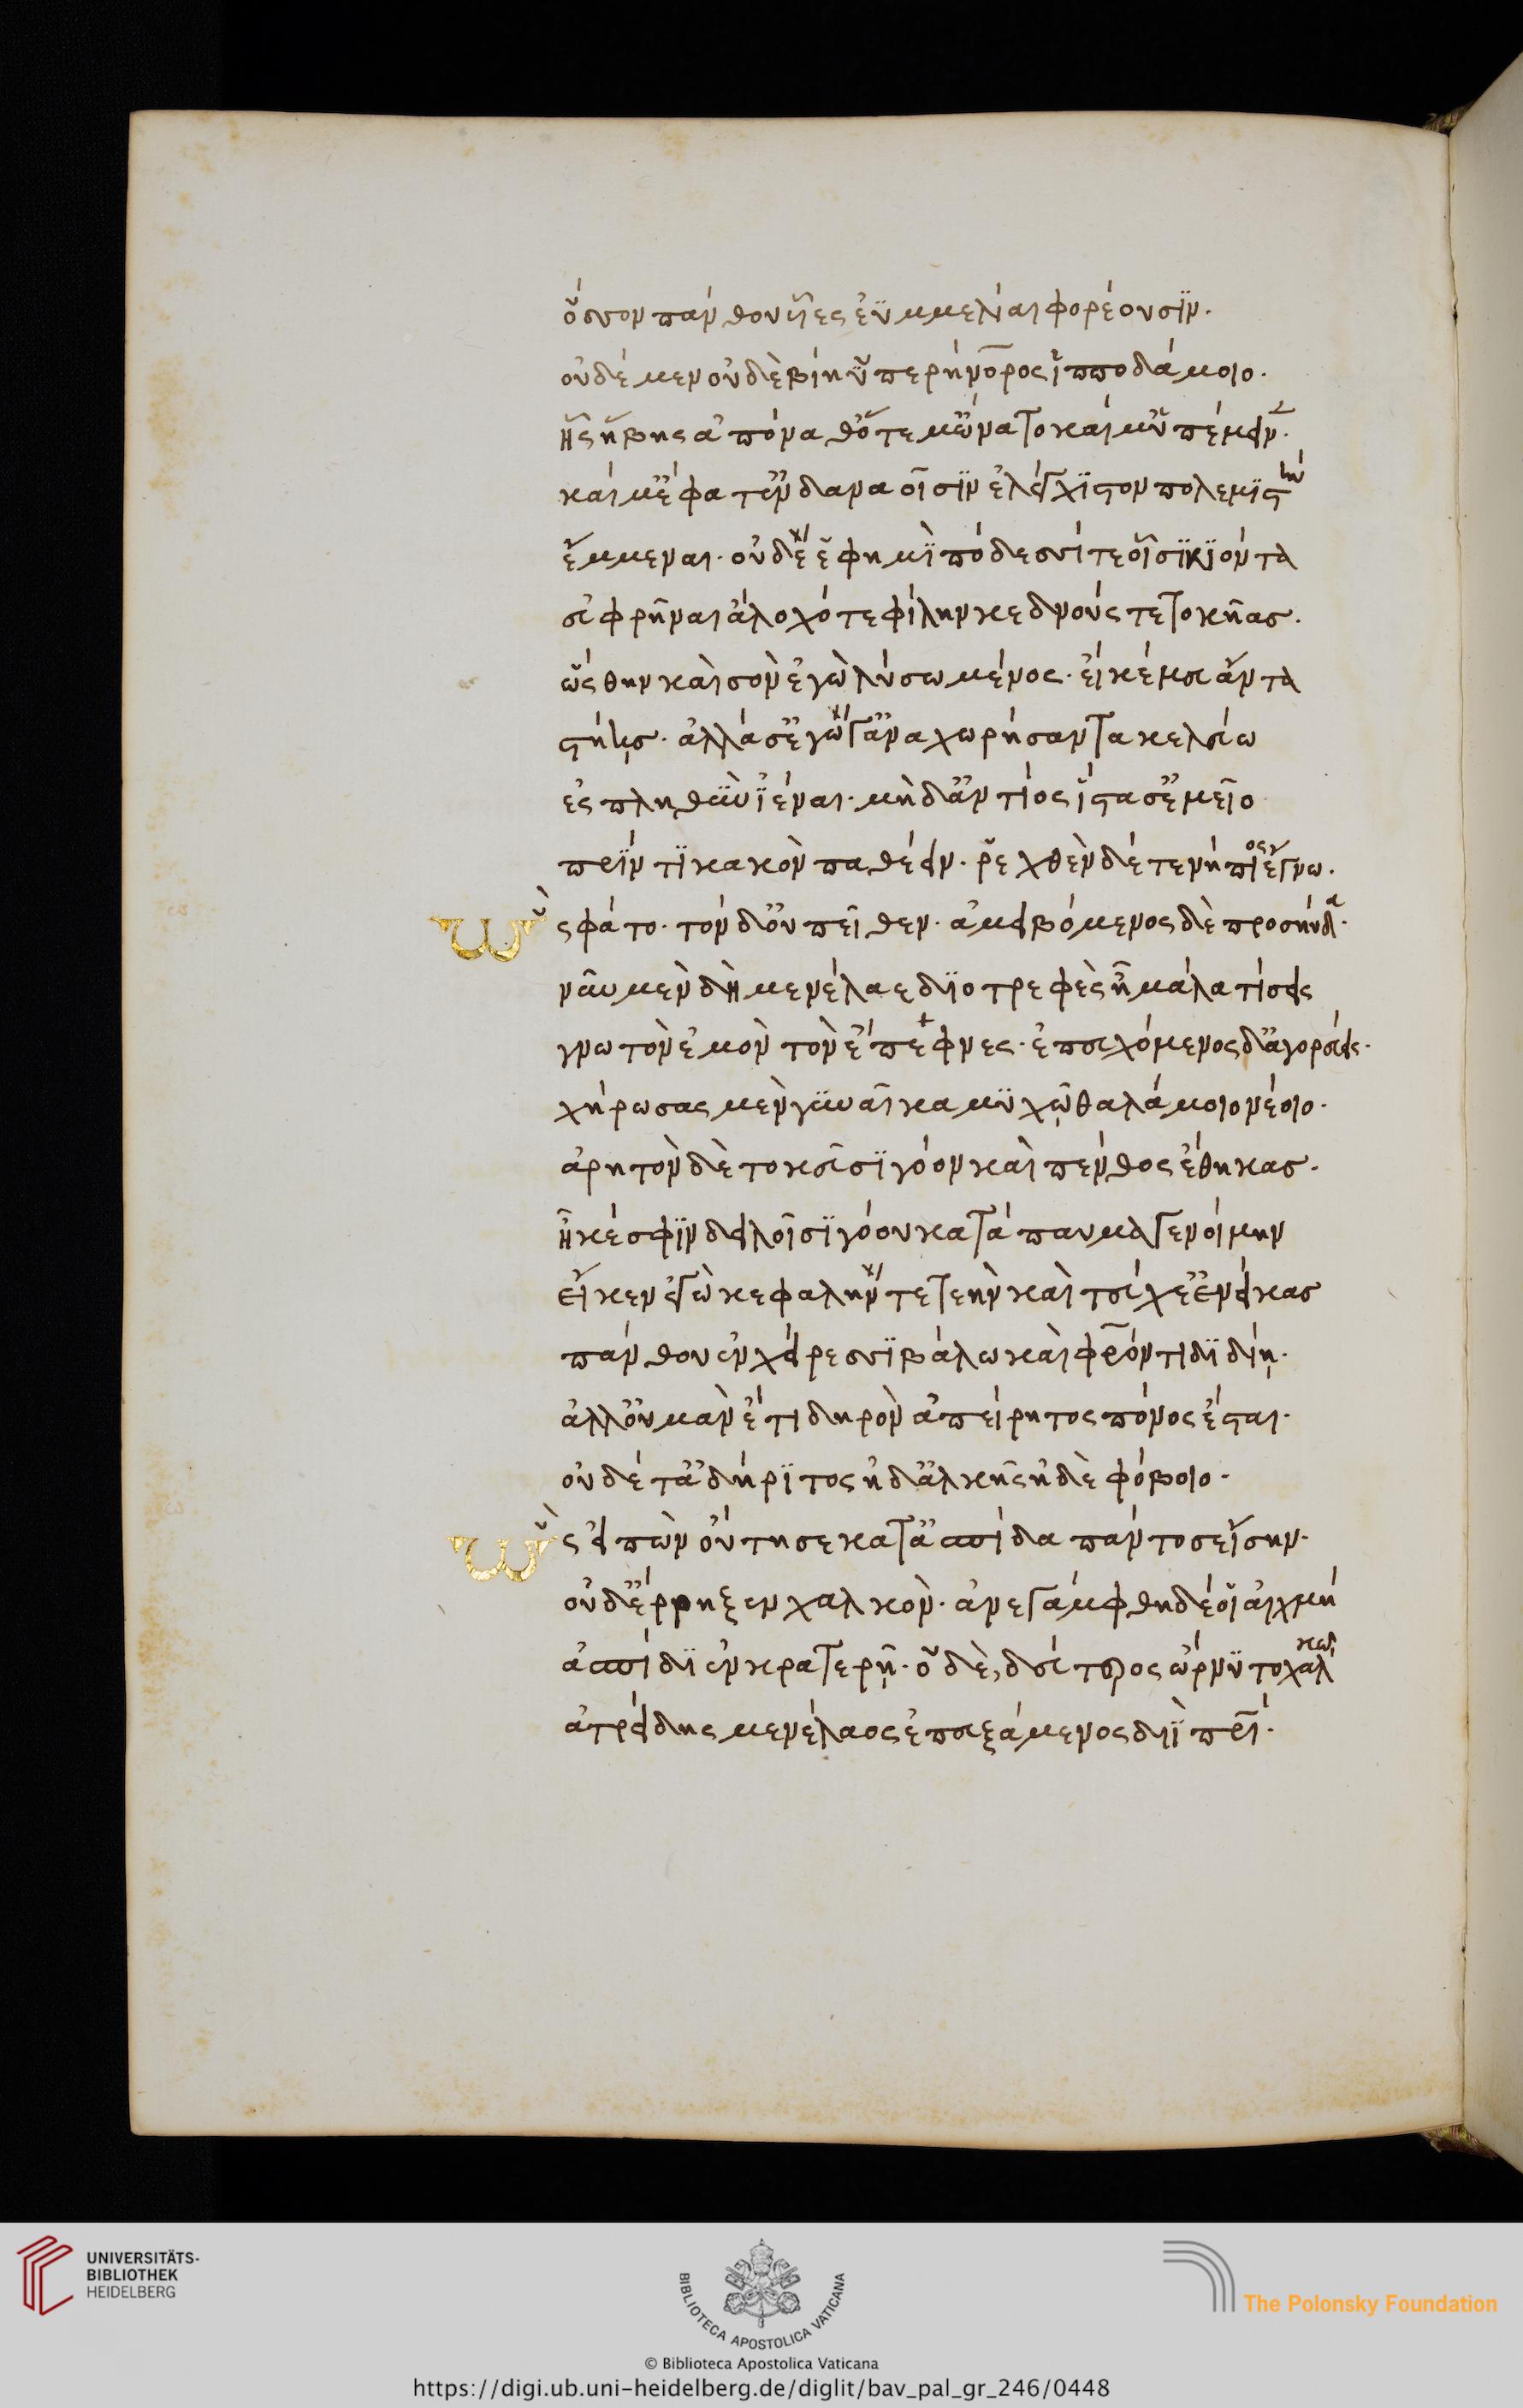 ὅσσον πάνθου υἷες ἐϋμμελίαι φορέουσϊν.
οὐδὲ μὲν οὐδὲ βίη ὑπερήνορος ἱπποδάμοιο.
ἧς ἥβης ἀπόναθ' ὅτε μ' ὤνατο καί μ' ὑπέμεινε.
καί μ' ἔφατ' ἐν δαναοῖσϊν ἐλέγχϊστον πολεμϊστὴν
ἔμμεναι. οὐδέ ἕ φημϊ πόδεσσί γε οἷσϊ κϊόντα
εὐφρῆναι ἄλοχόν τε φίλην κεδνούς τε τοκῆας.
ὥς θην καὶ σὸν ἐγὼ λύσω μένος. εἴ κέ μευ ἄντα
στήῃς. ἀλλά σ' ἔγωγ' ἀναχωρήσαντα κελεύω
ἐς πληθὺν ἰέναι. μὴ δ' ἀντίος ἵστασ' ἐμεῖο
πρίν τϊ κακὸν παθέειν. ῥεχθὲν δέ τε νήπιος ἔγνω.
ὣς φάτο. τὸν δ' οὐ πεῖθεν. ἀμειβόμενος δὲ προσηύδα.
νῦν μὲν δὴ μενέλαε δϊοτρεφὲς ἦ μάλα τίσεις
γνωτὸν ἐμὸν τὸν ἔπεφνες. ἐπευχόμενος δ' ἀγορεύεις.
χήρωσας μὲν γυναῖκα μυχῷ θαλάμοιο νέοιο.
ἀρητὸν δὲ τοκεῦσϊ γόον καὶ πένθος ἔθηκας.
ἦ κέ σφϊν δειλοῖσϊ γόου κατάπαυμα γενοίμην
εἴ κεν ἐγὼ κεφαλήν τε τεὴν καὶ τεύχε' ἐνείκας
πάνθου ἐν χείρεσσϊ βάλω καὶ φρόντιδϊ δίῃ.
ἀλλ' οὐ μὰν ἔτι δηρὸν ἀπείρητος πόνος ἔσται.
οὐδέ τ' ἀδήρϊτος ἠδ' ἀλκῆς ἠδὲ φόβοιο.
ὣς εἰπὼν οὔτησε κατ' ἀσπίδα πάντοσ' ἐΐσην.
οὐδ' ἔρρηξεν χαλκόν. ἀνεγνάμφθη δέ οἱ αἰχμή
ἀσπίδϊ ἐν κρατερῇ. ὁ δὲ, δεύτερος ὤρνυτο χαλκῷ
ἀτρείδης μενέλαος ἐπευξάμενος διῒ πατρί.
UNIVERSITÄTS-
BIBLIOTHEK
HEIDELBERG
BIBLIOTECA APOSTOLICA VATICANA
The Polonsky Foundation
© Biblioteca Apostolica Vaticana
https://digi.ub.uni-heidelberg.de/diglit/bav_pal_gr_246/0448